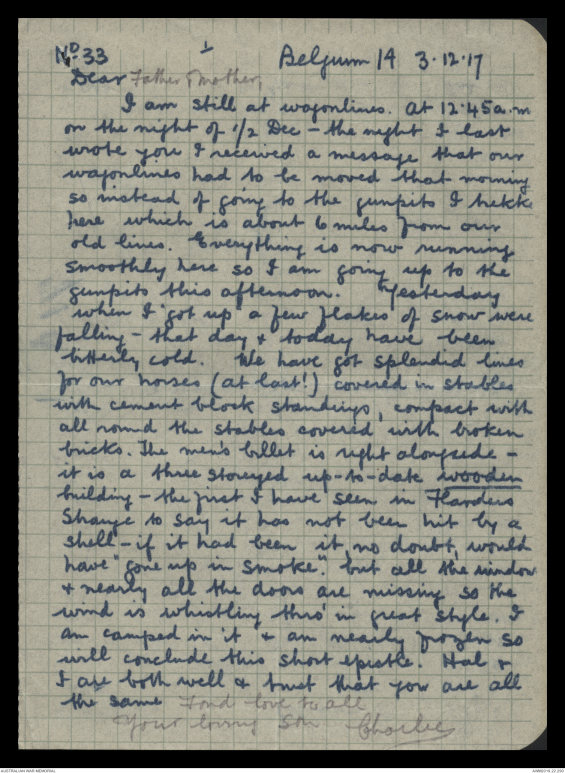 No. 33 1 Belgium 14 3.12.17
Dear Father & Mother,
I am still at wagonlines. At 12.45 a.m
on the night of 1/2 Dec – the night I last
wrote you I received a message that our
wagonlines had to be moved that morning
so instead of going to the gunpits I trekk
here which is about 6 miles from our
old lines. Everything is now running
smoothly here so I am going up to the
gunpits this afternoon. Yesterday
when I got up a few flakes of snow were
falling – that day & today have been
bitterly cold. We have got splendid lines
for our horses (at last!) covered in stables
with cement block standings, compact with
all round the stables covered with broken
bricks. The men's billet is right alongside –
it is a three storeyed up-to-date wooden
building – the first I have seen in Flanders
Strange to say it has not been hit by a
shell – if it had been it, no doubt, would
have "gone up in smoke". but all the window
& nearly all the doors are missing so the
wind is whistling thro' in great style. I
am camped in it & am nearly frozen so
will conclude this short epistle. Hal &
I are both well & trust that you are all
the same Fond love to all
Your loving Son Charlie
AUSTRALIAN WAR MEMORIAL